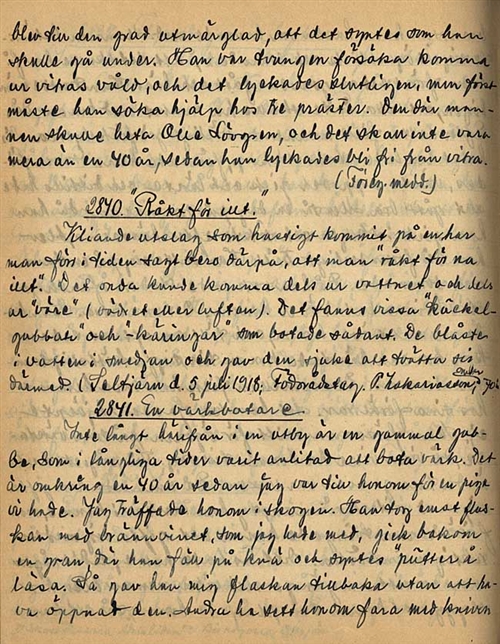 blev till den grad utmärglad, att det syntes som han
skulle gå under. Han var tvungen försöka komma
ur vitras våld, och det lyckades slutligen, men först
måste han söka hjälp hos tre präster. Den där man-
nen skulle heta Olle Lövgren, och det skall inte vara
mera än en 40 år, sedan han lyckades bli fri från vitra.
(Föreg. medd.)
2840. "Råkt för illt."
Kliande utslag som hastigt kommit på en, har
man förr i tiden sagt bero därpå, att man "råkt för na
illt". Det onda kunde komma dels ur vattnet och dels
ur "väre" (vädret eller luften). Det fanns vissa "käckel-
gubbar" och "-käringar" som botade sådant. De blåste
i vatten i smedjan och gav den sjuke att tvätta sig
därmed. (Seltjärn d. 5 juli 1918; Födorådstag. P. Zakariasson,
2841. En värkbotare.
Inte långt härifrån i en utby är en gammal gub-
be, som i långliga tider varit anlitad att bota värk. Det
är omkring en 40 år sedan jag var till honom för en piga
vi hade. Jag träffade honom i skogen. Han tog emot flas-
kan med brännvinet, som jag hade med, gick bakom
en gran, där han föll på knä och syntes "pütter å
läsa. Så gav han mig flaskan tillbaka utan att ha-
va öppnat den. Andra ha sett honom fara med kniven